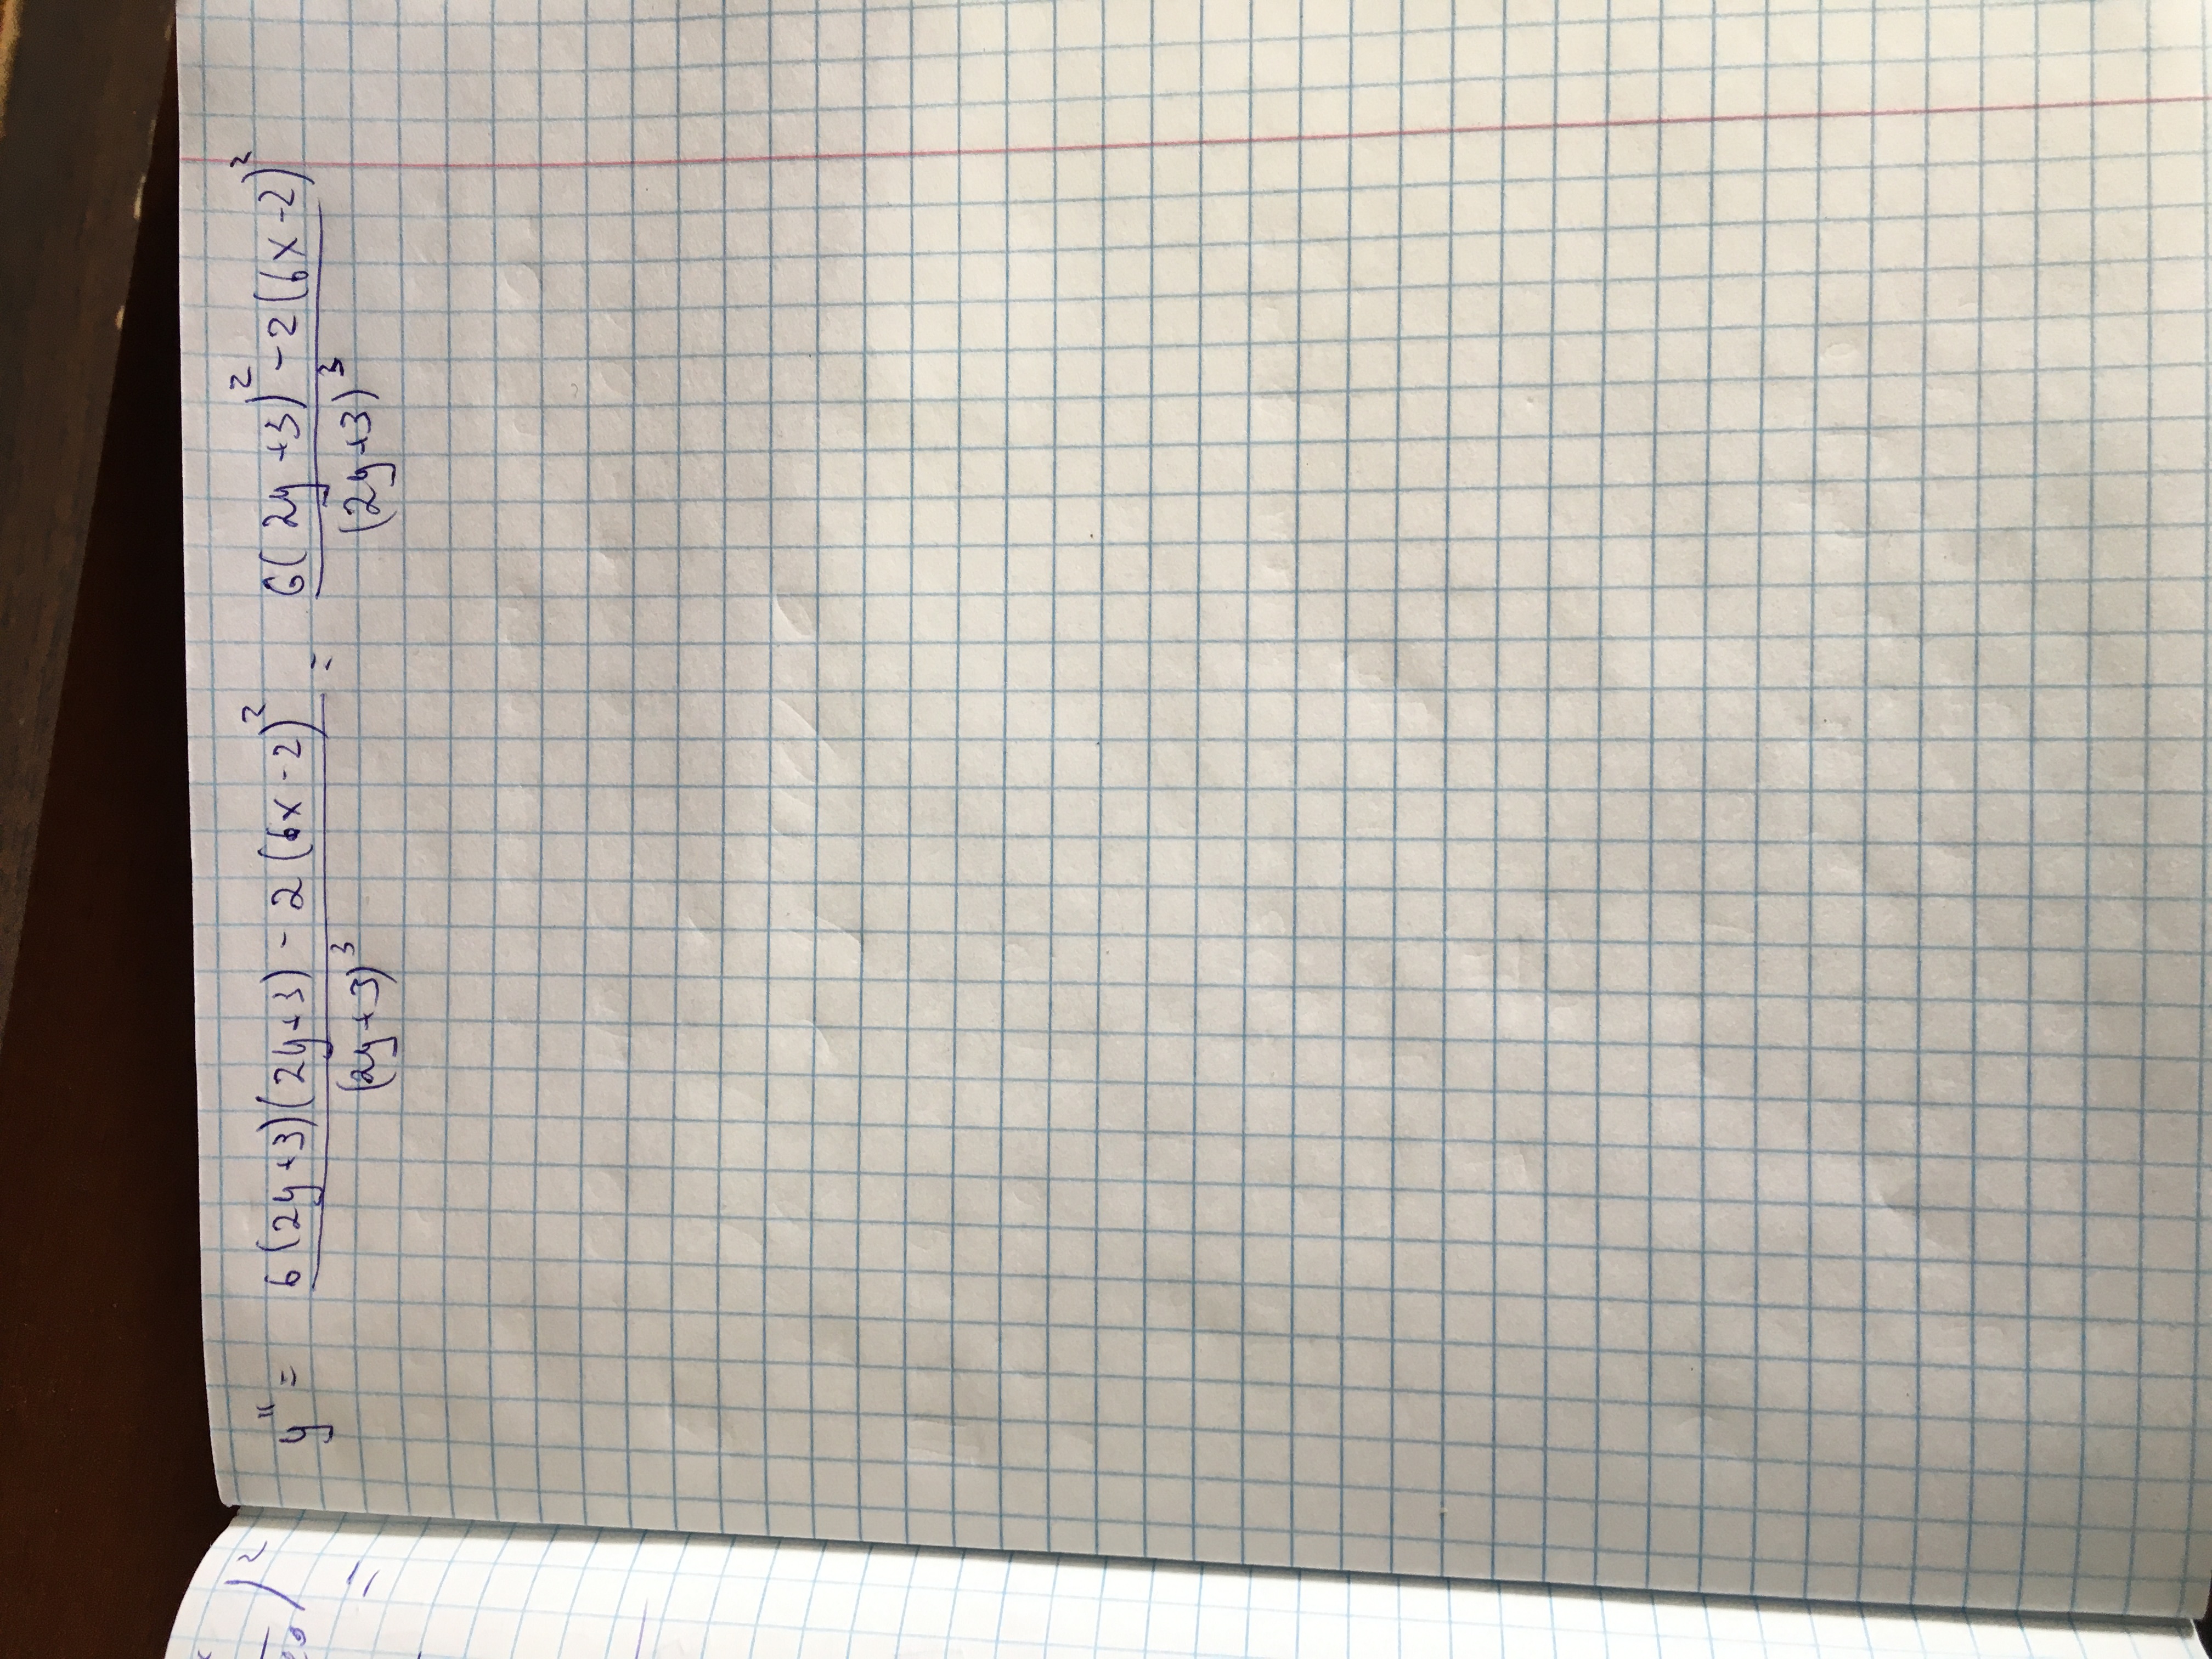 y'' = (6(2y+3)(2y+3) - 2(6x-2)²)/(2y+3)³ = (6(2y+3)² - 2(6x-2)²)/(2y+3)³
)²
=